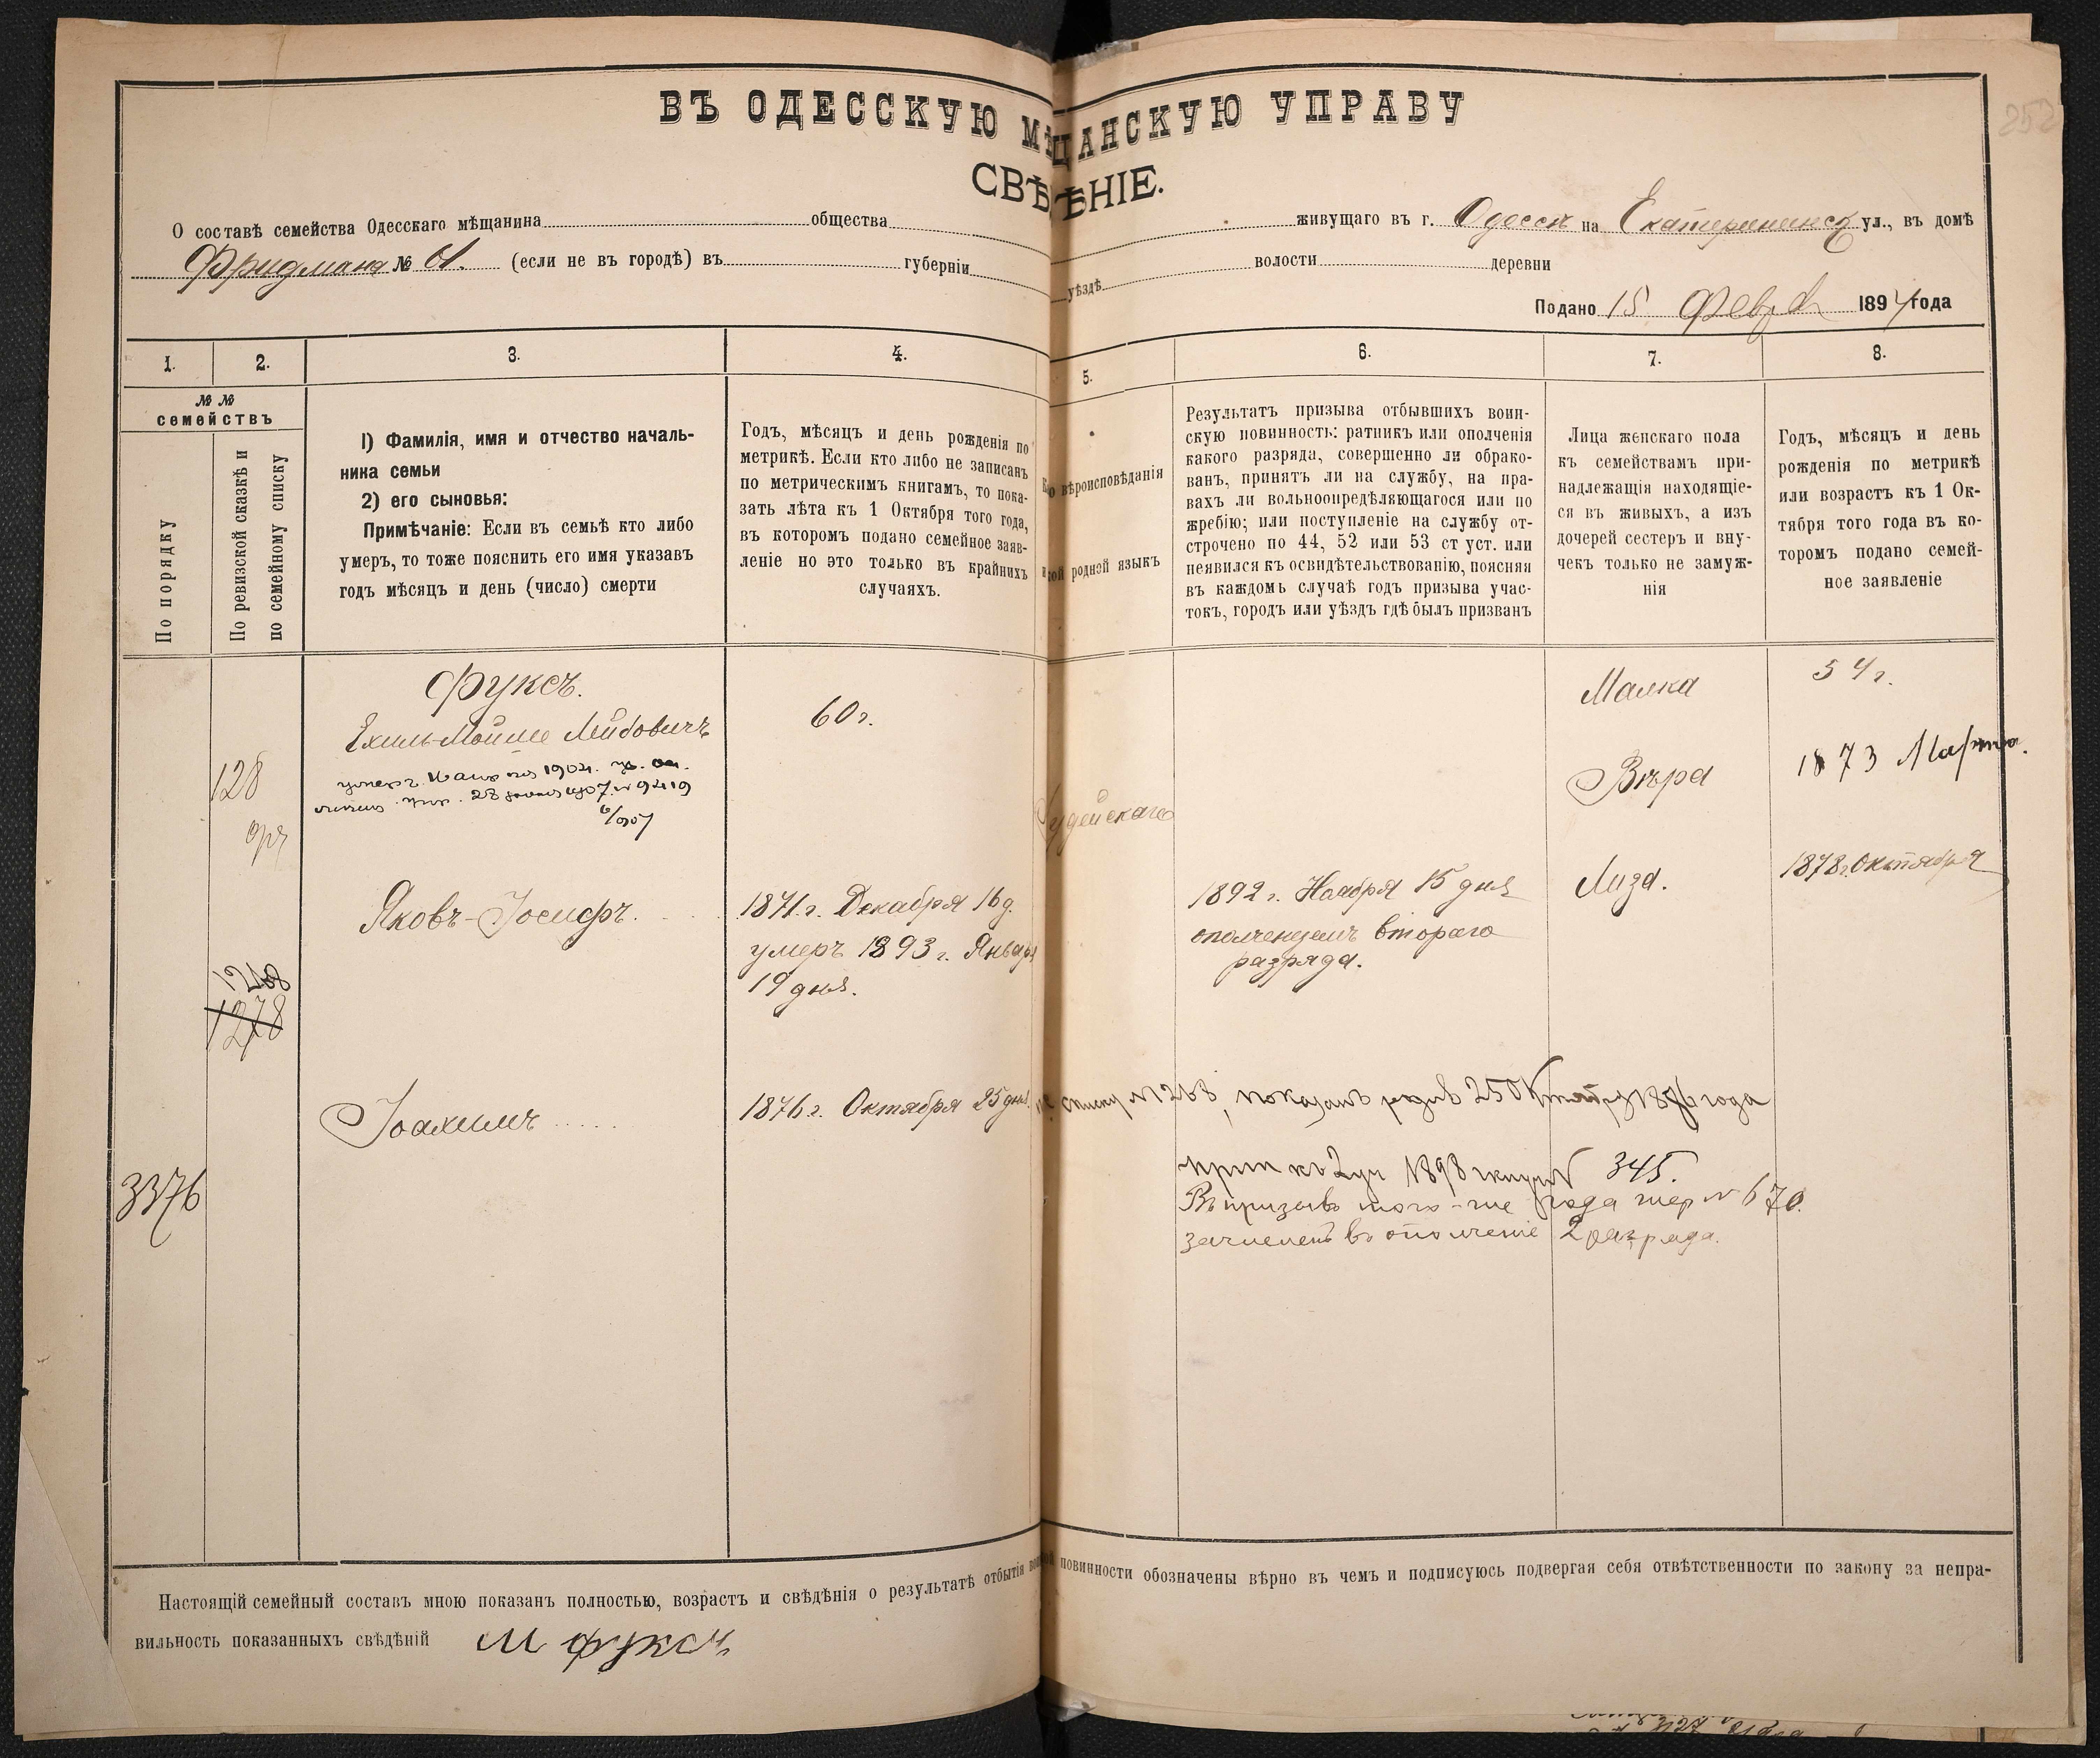 ВЪ ОДЕССКУЮ МѢЩАНСКУЮ УПРАВУ
СВѢДѢНІЕ.
252
О составѣ семейства Одесскаго мѣщанина общества живущаго въ г. Одессѣ на Екатерининск ул., въ домѣ
Фридмана № 61. (если не въ городѣ) въ губерніи уѣздѣ волости деревни
Подано 15 Февр 1894 года
1. 2. 3. 4. 5. 6. 7. 8.
№ №
семействъ
По порядку
По ревизской сказкѣ и
по семейному списку
1) Фамилія, имя и отчество началь-
ника семьи
2) его сыновья:
Примѣчаніе: Если въ семьѣ кто либо
умеръ, то тоже пояснить его имя указавъ
годъ мѣсяцъ и день (число) смерти
Годъ, мѣсяцъ и день рожденія по
метрикѣ. Если кто либо не записанъ
по метрическимъ книгамъ, то пока-
зать лѣта къ 1 Октября того года,
въ которомъ подано семейное заяв-
леніе но это только въ крайнихъ
случаяхъ.
вѣроисповѣданія
родной языкъ
Результатъ призыва отбывшихъ воин-
скую повинность: ратникъ или ополченія
какого разряда, совершенно ли обрако-
ванъ, принятъ ли на службу, на пра-
вахъ ли вольноопредѣляющагося или по
жребію; или поступленіе на службу от-
строчено по 44, 52 или 53 ст уст. или
неявился къ освидѣтельствованію, поясняя
въ каждомъ случаѣ годъ призыва учас-
токъ, городъ или уѣздъ гдѣ былъ призванъ
Лица женскаго пола
къ семействамъ при-
надлежащія находящіе-
ся въ живыхъ, а изъ
дочерей сестеръ и вну-
чекъ только не замуж-
нія
Годъ, мѣсяцъ и день
рожденія по метрикѣ
или возрастъ къ 1 Ок-
тября того года въ ко-
торомъ подано семей-
ное заявленіе
Фуксъ.
Ехиль-Мойше Лейбовичъ
60 г.
Малка
54 г.
128
умеръ 1904.
28 1907 № 9419
Іудейскаго
Вѣра
1873 Марта.
Яковъ-Іосифъ.
1871 г. Декабря 16 д.
умеръ 1893 г. Января
19 дня.
1892 г. Ноября 15 дня
ополченцемъ втораго
разряда.
Лиза.
1878 г. Октября
1268
1278
Іоахимъ
1876 г. Октября 25 дня.
списку № 1268, показанъ 25 Октября 1876 года
3376
къ 2 уч 1898 № 345.
Въ призывѣ того-же года жер № 670.
зачисленъ въ ополченіе 2 разряда.
Настоящій семейный составъ мною показанъ полностью, возрастъ и свѣдѣнія о результатѣ отбытія повинности обозначены вѣрно въ чемъ и подписуюсь подвергая себя отвѣтственности по закону за непра-
вильность показанныхъ свѣдѣній М Фуксъ